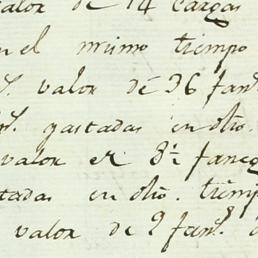 valor de 14 cargas
en el mismo tiempo
valor de 36 fan.s
gastadas en otro.
valor es
tadas en otro. tiemp
valor de 9 fan.s